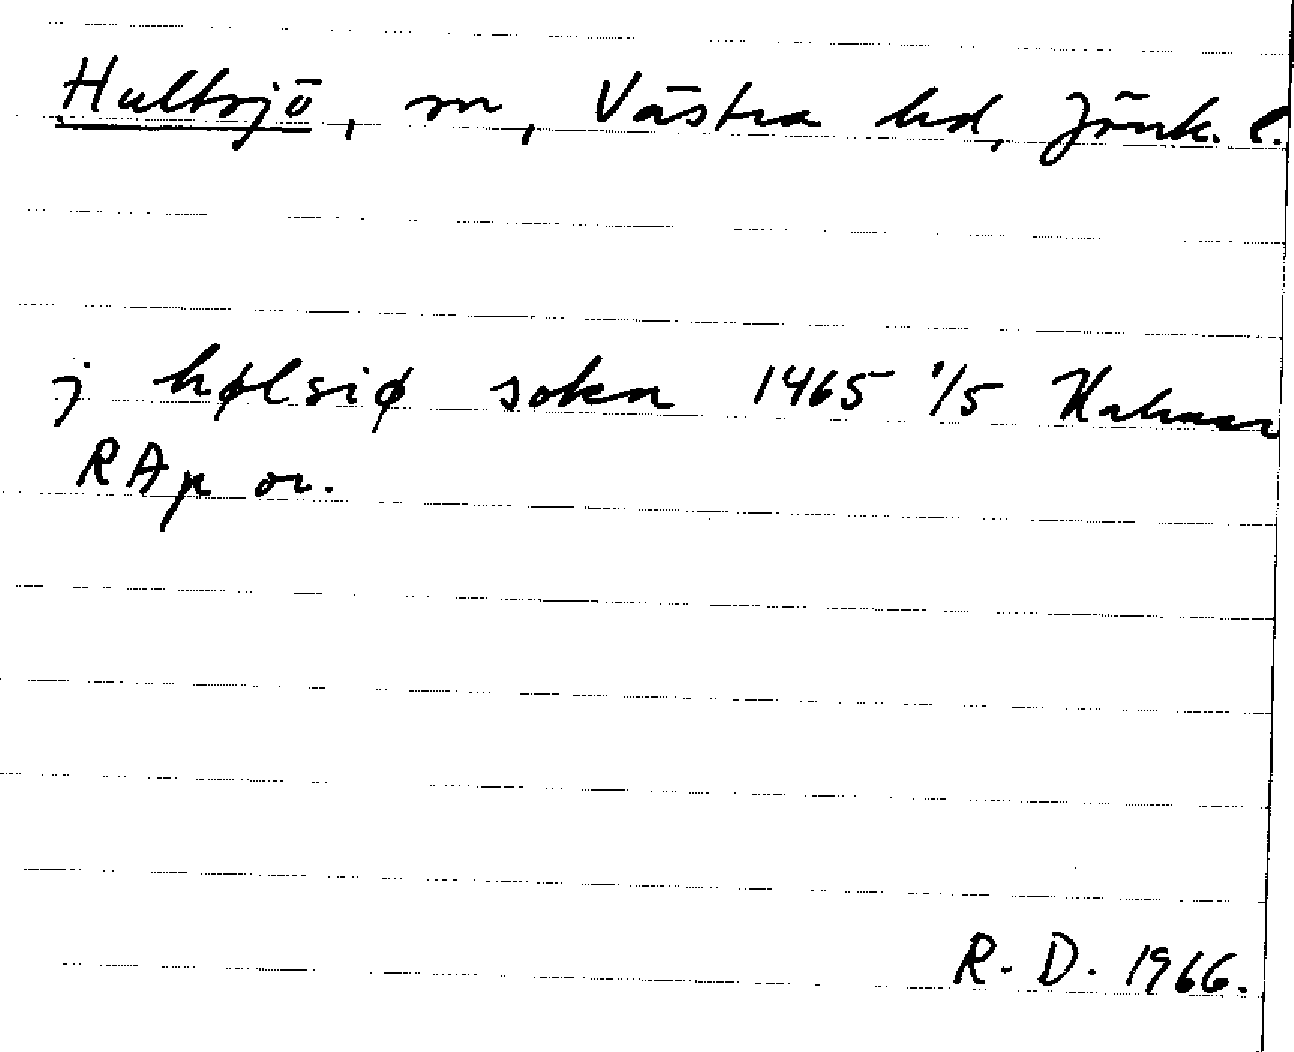 Hultsjö, sn, Västra hd, Jönk. l.
j hølsiø sokn 1465 1/5 Kalmar
RAp or.
R. D. 1966.